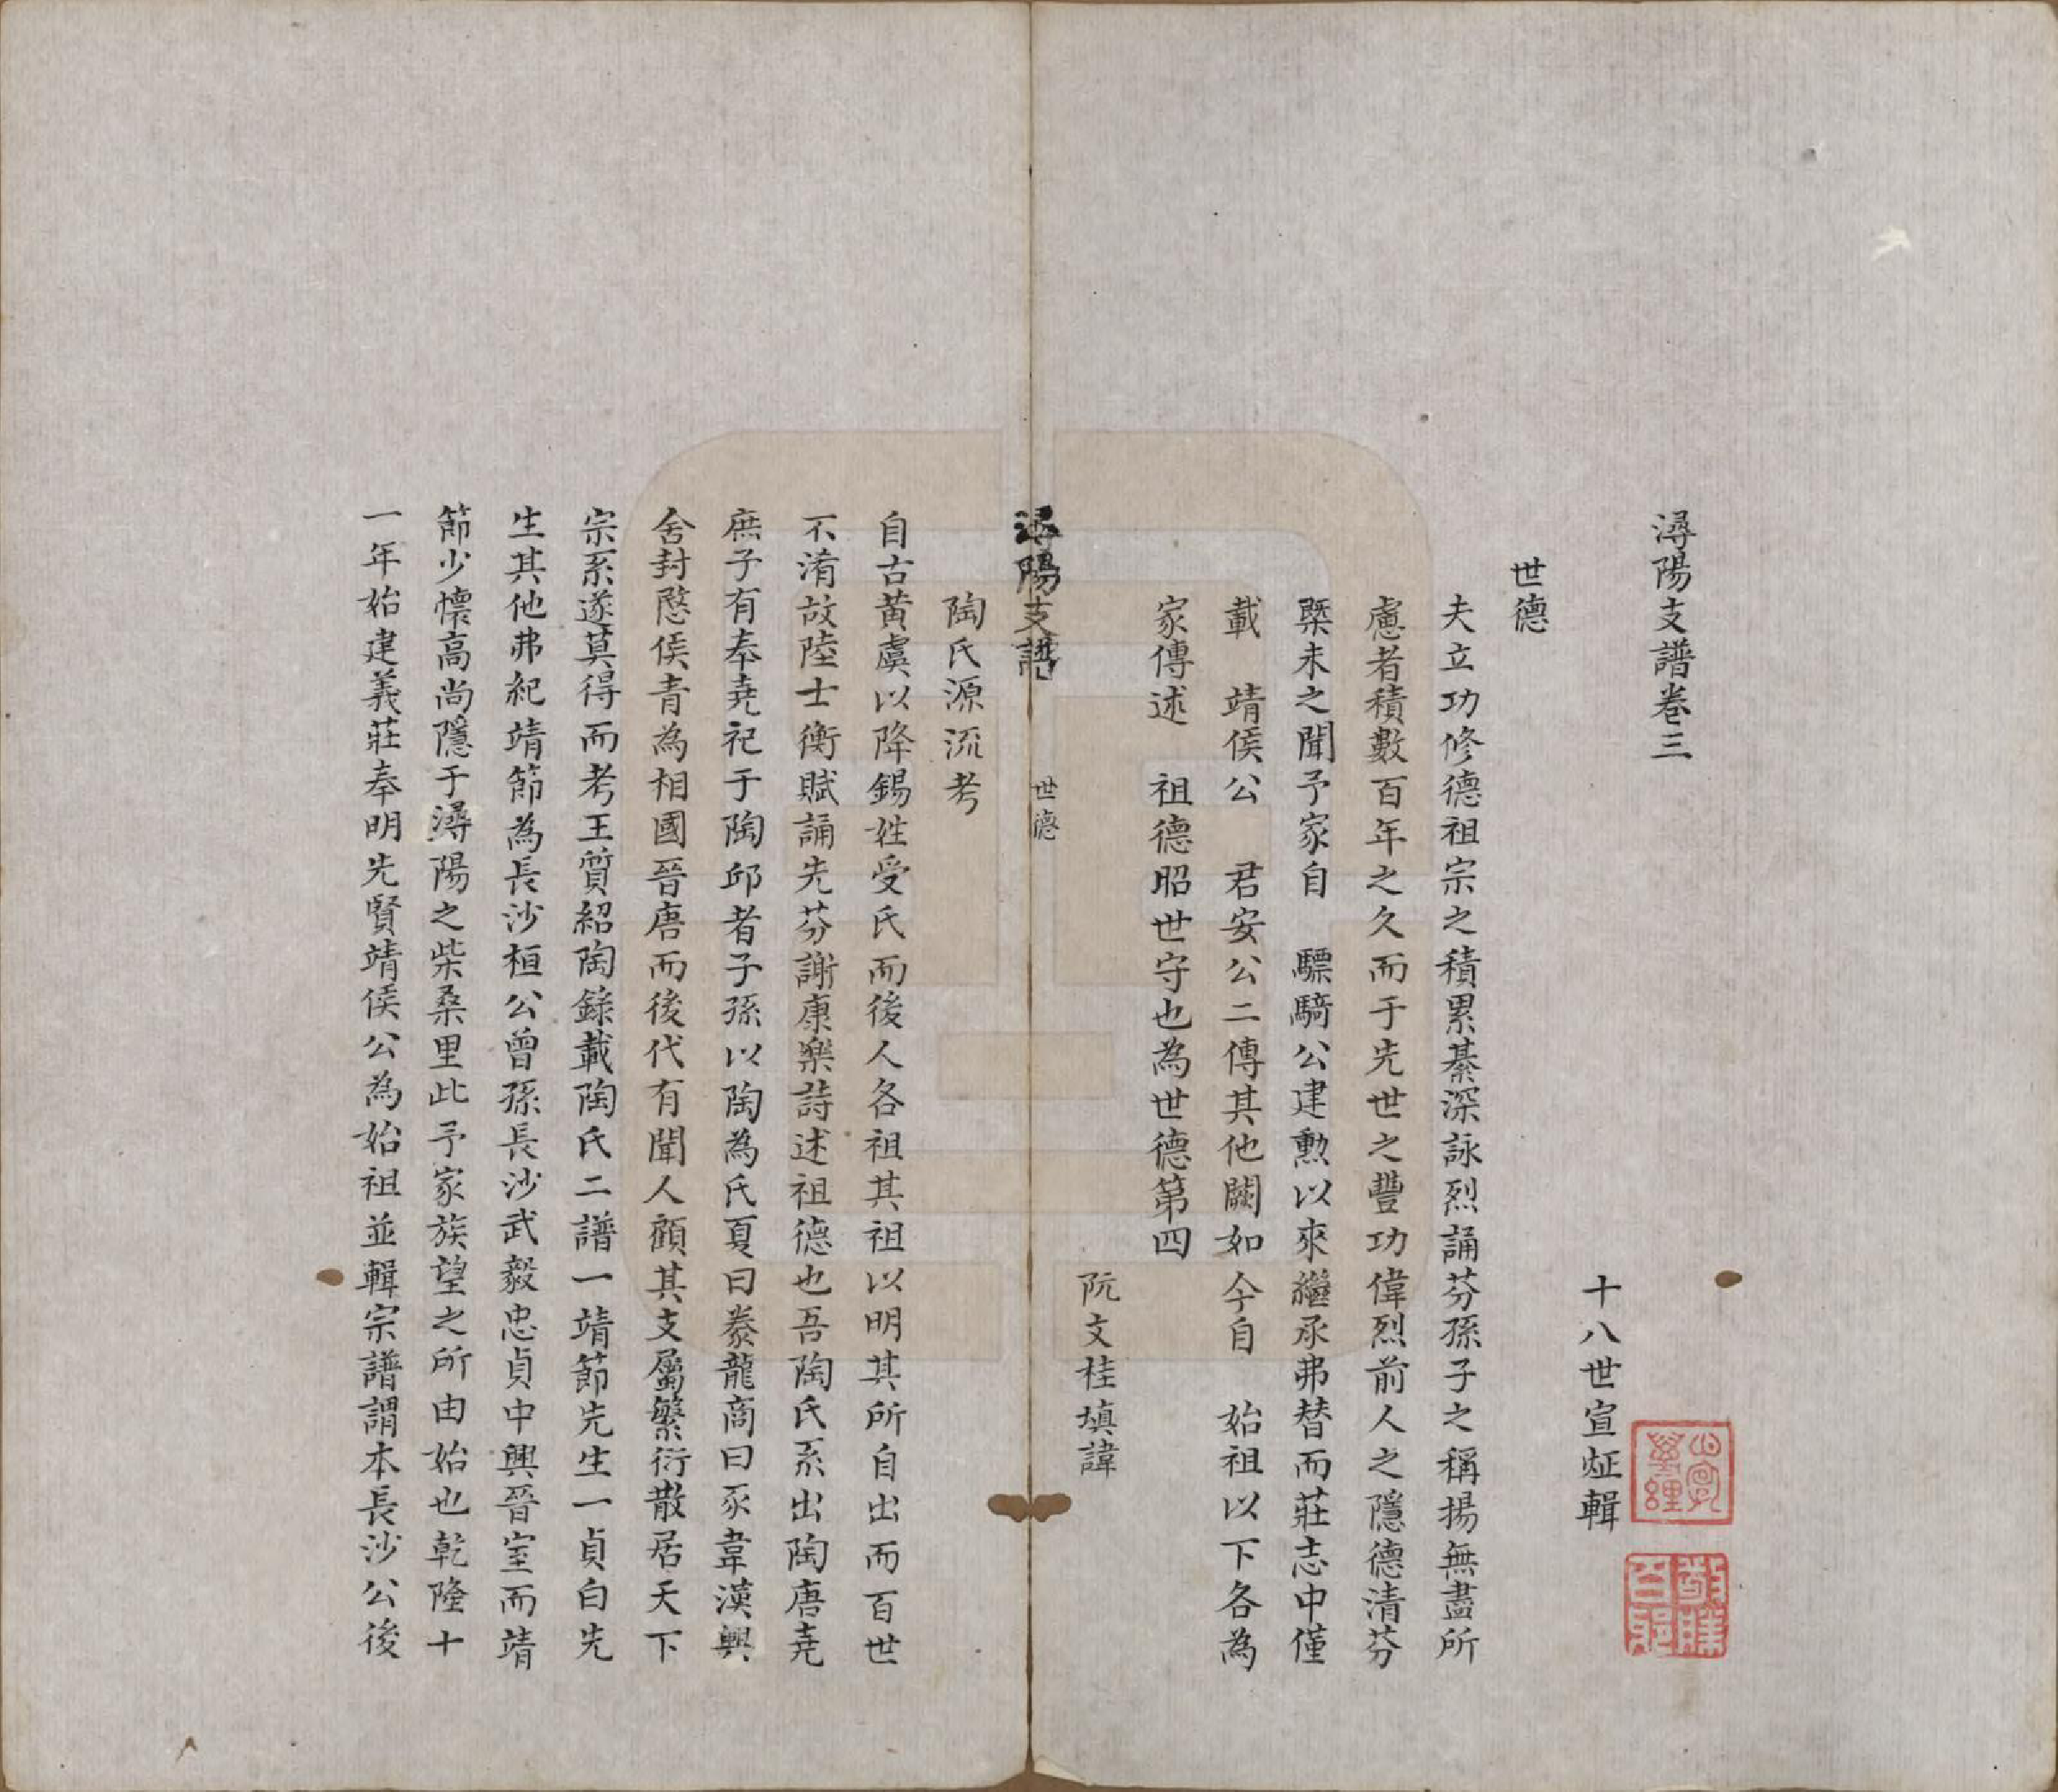 潯陽支譜卷三
十八世宣炡輯
世德
夫立功修德祖宗之積累綦深詠烈誦芬孫子之稱揚無盡所
慮者積數百年之久而于先世之豐功偉烈前人之隱德清芬
槩未之聞予家自　驃騎公建勲以來繼承弗替而莊志中僅
載　靖侯公　君安公二傳其他闕如今自　始祖以下各為
家傳述　祖德昭世守也為世德第四
阮文桂填諱
潯陽支譜　世德
陶氏源流考
自古黃虞以降錫姓受氏而後人各祖其祖以明其所自出而百世
不淆故陸士衡賦誦先芬謝康樂詩述祖德也吾陶氏系出陶唐堯
庶子有奉堯祀于陶邱者子孫以陶為氏夏曰豢龍商曰豕韋漢興
舍封愍侯青為相國晉唐而後代有聞人顧其支屬繁衍散居天下
宗系遂莫得而考王質紹陶錄載陶氏二譜一靖節先生一貞白先
生其他弗紀靖節為長沙桓公曾孫長沙武毅忠貞中興晉室而靖
節少懷高尚隱于潯陽之柴桑里此予家族望之所由始也乾隆十
一年始建義莊奉明先賢靖侯公為始祖並輯宗譜謂本長沙公後